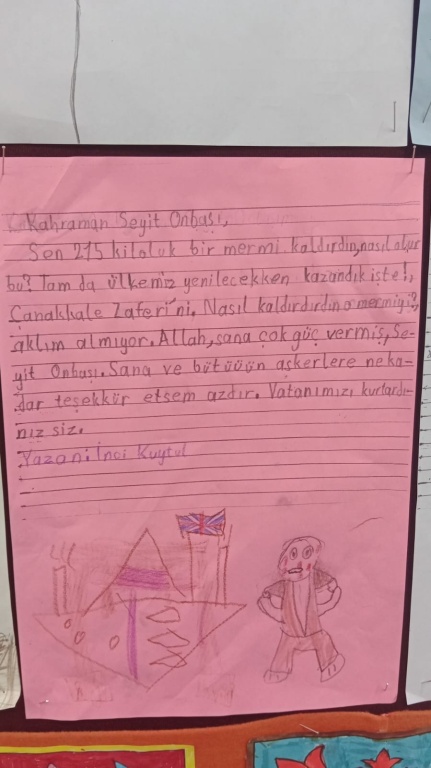 Kahraman Seyit Onbaşı,
Sen 215 kiloluk bir mermi kaldırdın, nasıl olur
bu? Tam da ülkemiz yenilecekken kazandık işte!,
Çanakkale Zaferi'ni. Nasıl kaldırdırdın o mermiyi?,
aklım almıyor. Allah, sana çok güç vermiş, Se-
yit Onbaşı. Sana ve bütüüün askerlere neka-
dar teşekkür etsem azdır. Vatanımızı kurtardı-
nız siz.
Yazan: İnci Kuytul